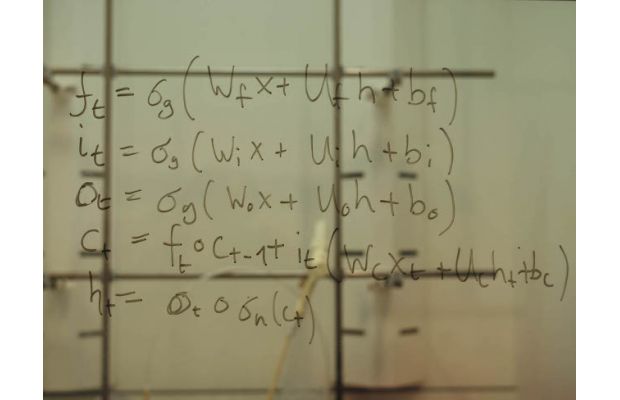 f_t = σ_g(W_f x + U_f h + b_f)
i_t = σ_g(W_i x + U_i h + b_i)
o_t = σ_g(W_o x + U_o h + b_o)
c_t = f_t ∘ c_{t-1} + i_t (W_c x_t + U_c h_t + b_c)
h_t = o_t ∘ σ_h(c_t)